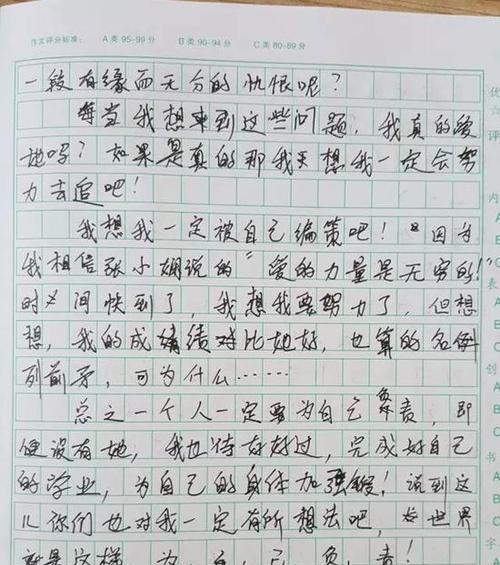 作文评分标准： A类 95-99 分 B类 90-94 分 C类 80-89 分
一段有缘而无分的仇恨呢？
每当我想来到这些问题，我真的爱
她吗？如果是真的那我天想我一定会努
力去追吧！
我想我一定被自己编策吧！“因为
我相信张小娴说的“爱的力量是无穷的！
时间快到了，我想我要努力了，但想
想，我的成绩对比她好，也算的名例
列前矛，可为什么……
总之一个人一定要为自己负责，即
便没有她，我也待好好过，完成好自己
的学业，为自己的身体加强锻！说到这
儿你们也对我一定有所想法吧，世界
就是这样，为，自，己，负，责！
优
☆
评
内
A
B
C
表
A
B
C
创
A
B
C
书
A
B
C
字